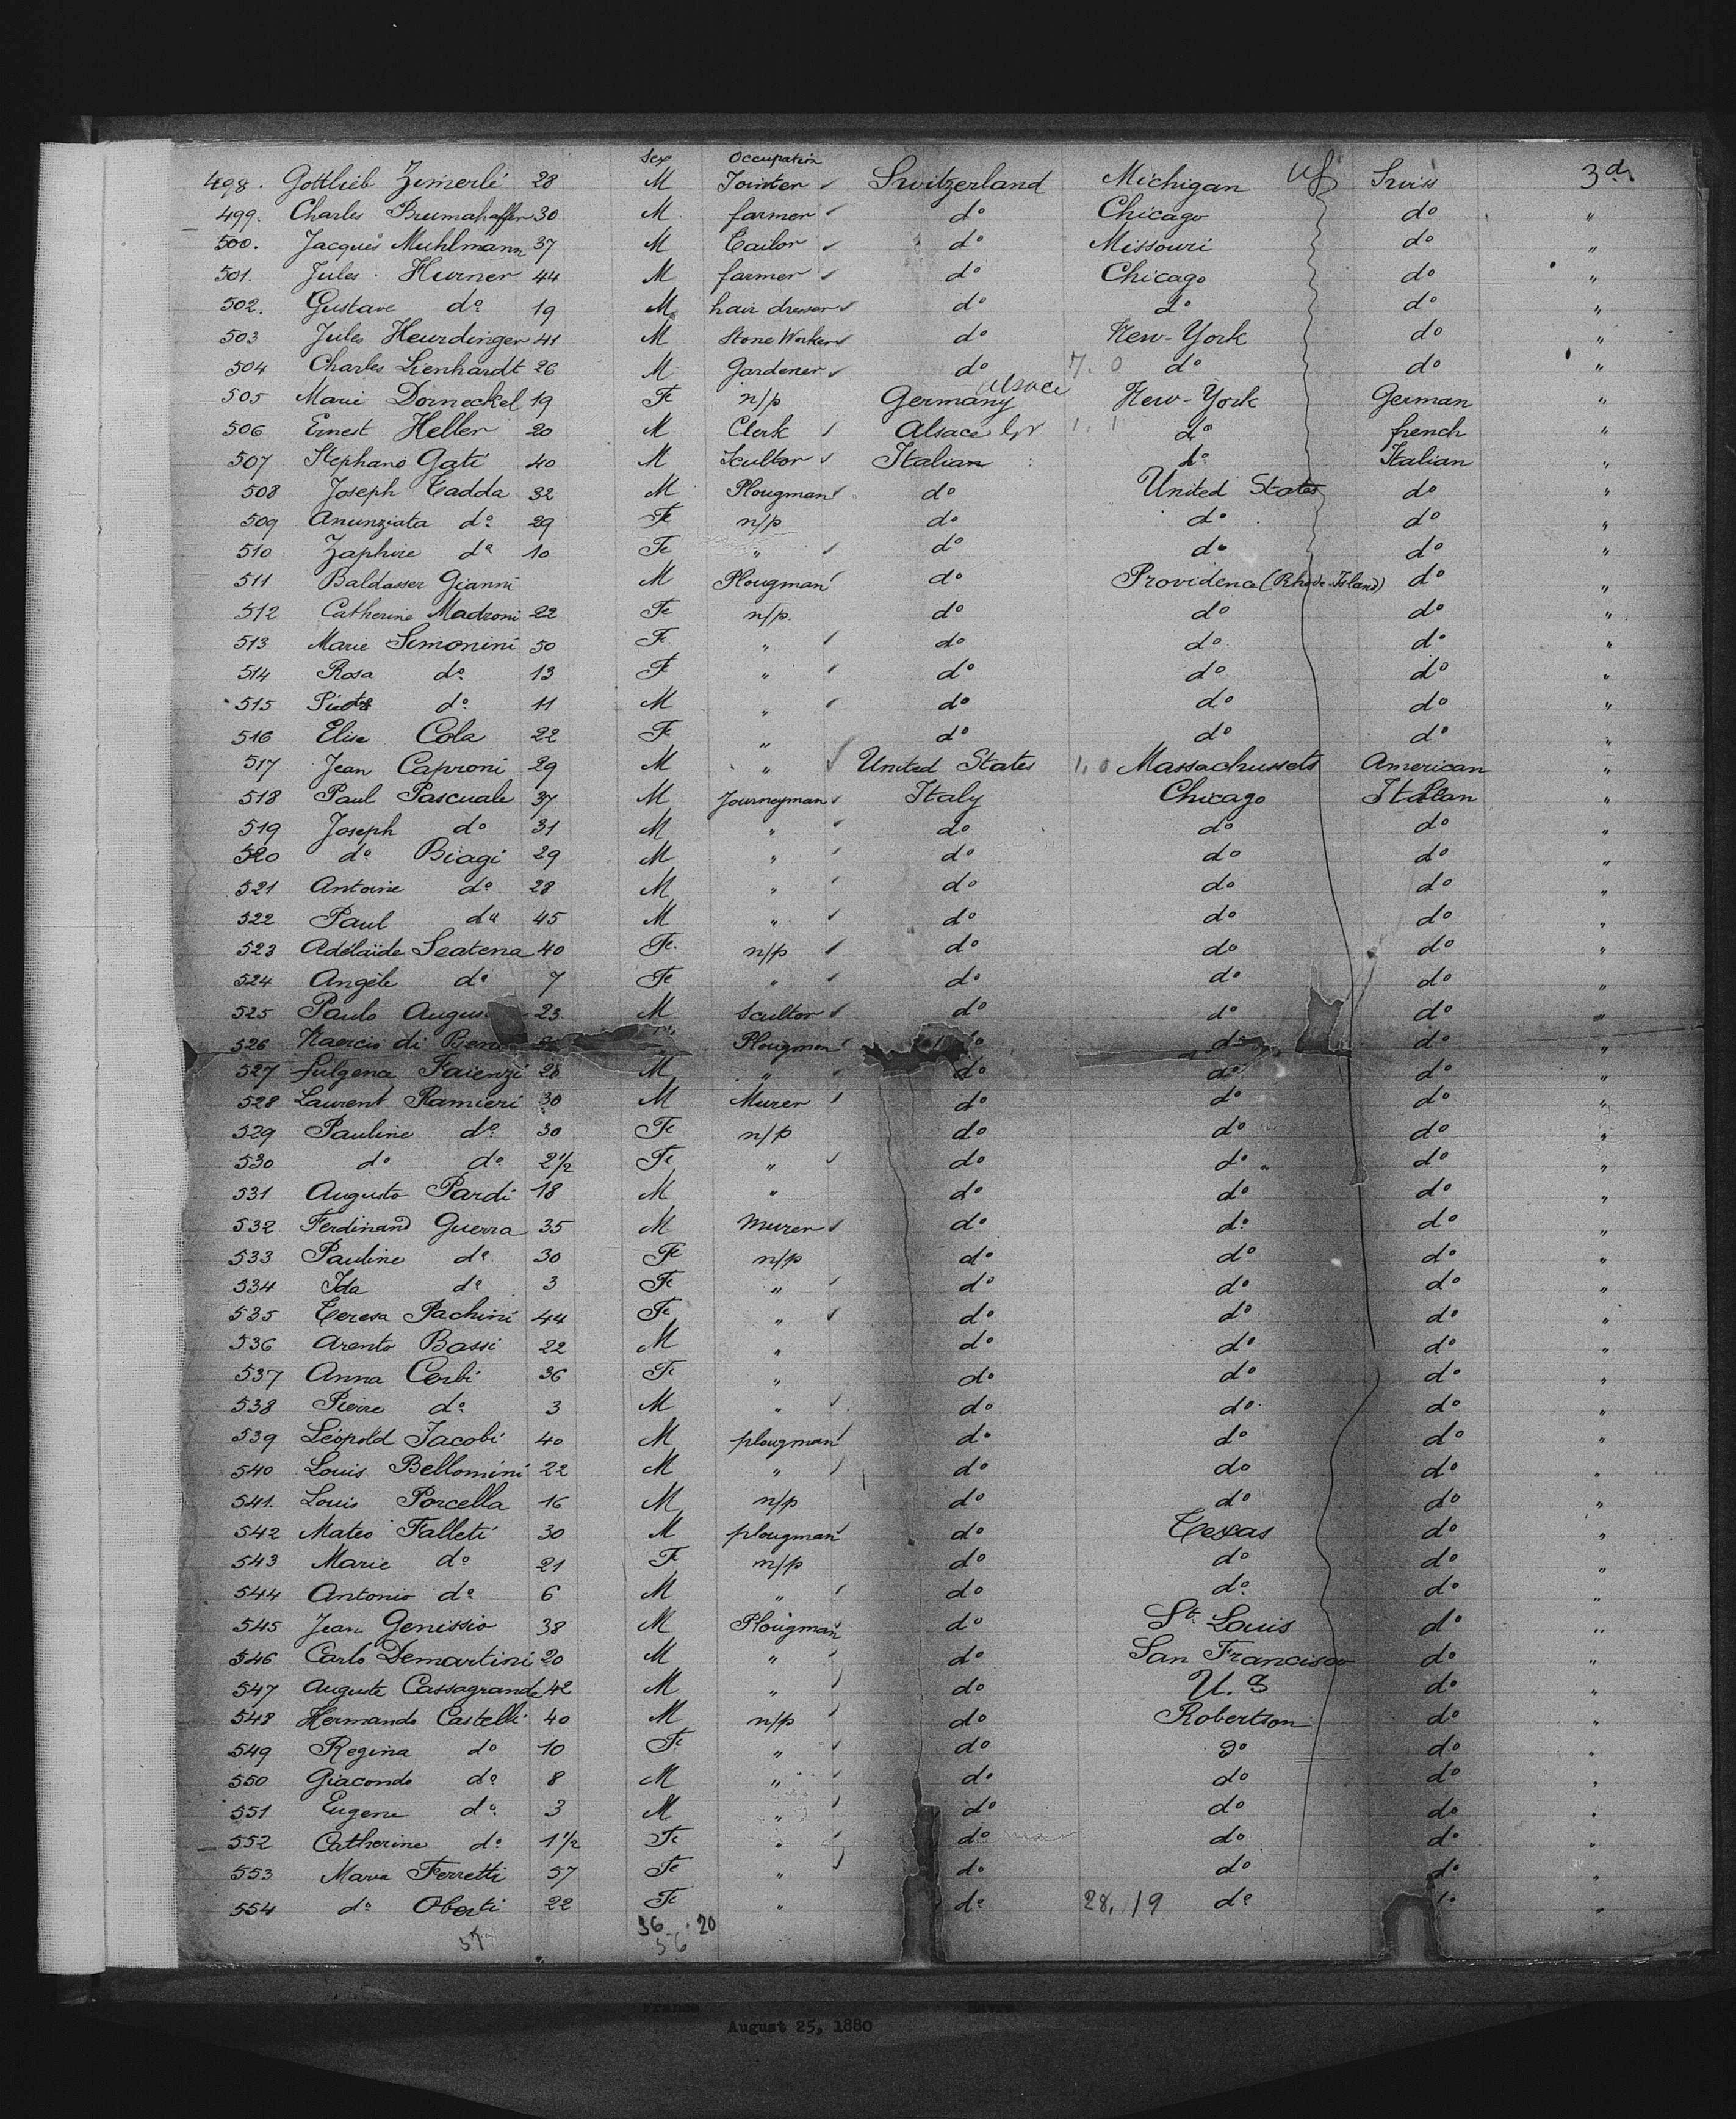 Sex Occupation
498. Gottlieb Zimerli 28 M Jointer Switzerland Michigan Swiss 3d
499. Charles Brumahaffer 30 M farmer do Chicago do "
500. Jacques Muhlmann 37 M Tailor do Missouri do "
501. Jules Hurner 44 M farmer do Chicago do "
502. Gustave do 19 M hair dresser do do do "
503 Jules Heurdinger 41 M Stone Worker do New-York do "
504 Charles Lienhardt 26 M Gardener do 7. 0 do do "
505 Marie Dorneckel 19 Fe n/p Germany Alsace New-York German "
506 Ernest Heller 20 M Clerk Alsace 1, 1 do french "
507 Stephano Gati 40 M Scultor Italian do Italian "
508 Joseph Tadda 32 M Plougman do United States do "
509 Anunziata do 29 Fe n/p do do do "
510 Zaphire do 10 Fe " do do do "
511 Baldasser Gianni M Plougman do Providence (Rhode-Island) do "
512 Catherine Madroni 22 Fe n/p. do do do "
513 Marie Simonini 50 Fe " do do do "
514 Rosa do 13 Fe " do do do "
515 Pietro do 11 M " do do do "
516 Elise Cola 22 Fe " do do do "
517 Jean Caproni 29 M " United States 1, 0 Massachussets American "
518 Paul Pascuale 37 M Journeyman Italy Chicago Italian "
519 Joseph do 31 M " do do do "
520 do Biagi 29 M " do do do "
521 Antoine do 28 M " do do do "
522 Paul do 45 M " do do do "
523 Adélaïde Scatena 40 Fe. n/p do do do "
524 Angèle do 7 Fe " do do do "
525 Paulo 23 M Scultor do do do "
526 di Plougman do do do "
527 Fulgence Faienzi 28 M " do do do "
528 Laurent Ramieri 30 M Murer do do do "
529 Pauline do 30 Fe n/p do do do "
530 do do 2 1/2 Fe " do do do "
531 Augusto Pardi 18 M " do do do "
532 Ferdinand Guerra 35 M Murer do do do "
533 Pauline do 30 Fe n/p do do do "
534 Ida do 3 Fe " do do do "
535 Teresa Pachini 44 Fe " do do do "
536 Arento Bassi 22 M " do do do "
537 Anna Cerbi 36 Fe " do do do "
538 Pierre do 3 M " do do do "
539 Léopold Jacobi 40 M plougman do do do "
540 Louis Bellomini 22 M " do do do "
541. Louis Porcella 16 M n/p do do do "
542 Mateo Falleti 30 M plougman do Texas do "
543 Marie do 21 Fe n/p do do do "
544 Antonio do 6 M " do do do "
545 Jean Genissio 38 M Plougman do St. Louis do "
546 Carlo Demartini 20 M " do San Francisco do "
547 Auguste Cassagrande 42 M " do U. S do "
548 Hermando Castelli 40 M n/p do Robertson do "
549 Regina do 10 Fe " do do do "
550 Giacondo do 8 M " do do do "
551 Eugene do 3 M " do do do "
552 Catherine do 1 1/2 Fe " do do do "
553 Maria Ferretti 57 Fe " do do do "
554 do Oberti 22 Fe " do 28, 19 do "
57 36 . 20
56
France Havre
August 25, 1880